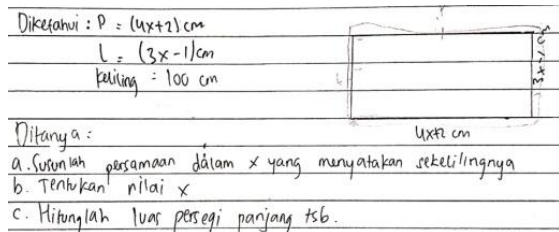 Diketahui : P = (4x+2) cm
L = (3x-1) cm
keliling = 100 cm
3x-1 cm
4x+2 cm
Ditanya :
a. Susunlah persamaan dalam x yang menyatakan sekelilingnya
b. Tentukan nilai x
c. Hitunglah luas persegi panjang tsb.